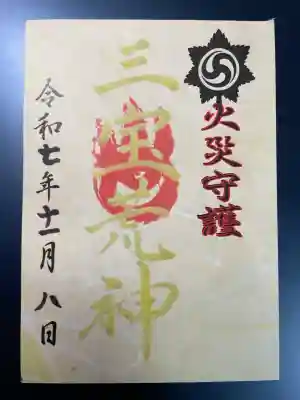 火災守護
三宝荒神
令和七年十一月八日